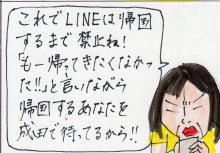 これでLINEは帰国
するまで禁止ね!
「もー帰ってきたくなかっ
た!!」と言いながら
帰国するあなたを
成田で待ってるから!!